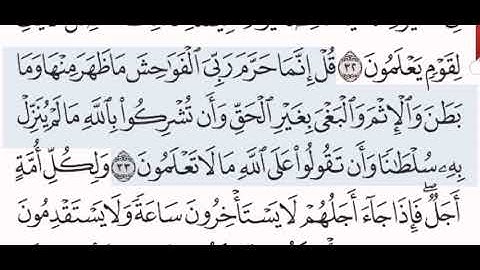 لِقَوْمٍ يَعْلَمُونَ ٣٢ قُلْ إِنَّمَا حَرَّمَ رَبِّيَ ٱلْفَوَٰحِشَ مَا ظَهَرَ مِنْهَا وَمَا
بَطَنَ وَٱلْإِثْمَ وَٱلْبَغْيَ بِغَيْرِ ٱلْحَقِّ وَأَن تُشْرِكُوا۟ بِٱللَّهِ مَا لَمْ يُنَزِّلْ
بِهِۦ سُلْطَٰنًا وَأَن تَقُولُوا۟ عَلَى ٱللَّهِ مَا لَا تَعْلَمُونَ ٣٣ وَلِكُلِّ أُمَّةٍ
أَجَلٌ ۖ فَإِذَا جَآءَ أَجَلُهُمْ لَا يَسْتَأْخِرُونَ سَاعَةً وَلَا يَسْتَقْدِمُونَ